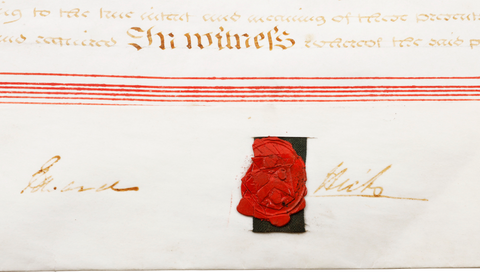 to the true intent and meaning of these presents
and required In witness whereof the said p
Hicks